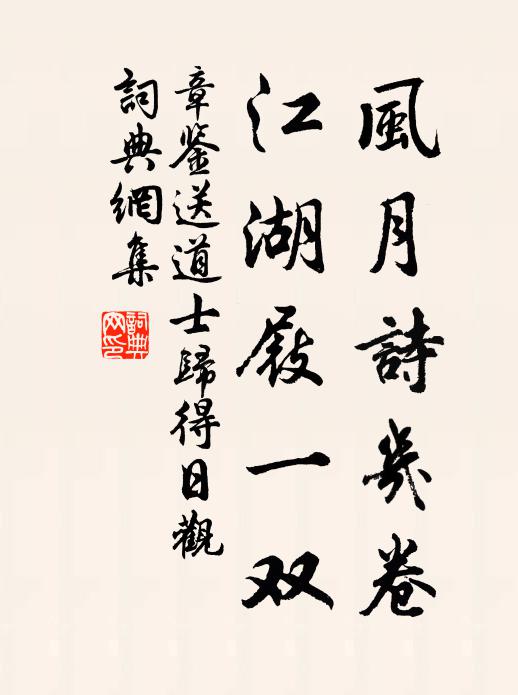 風月詩幾卷
江湖屐一双
章鉴送道士歸得日觀
詞典網集
詞典网印